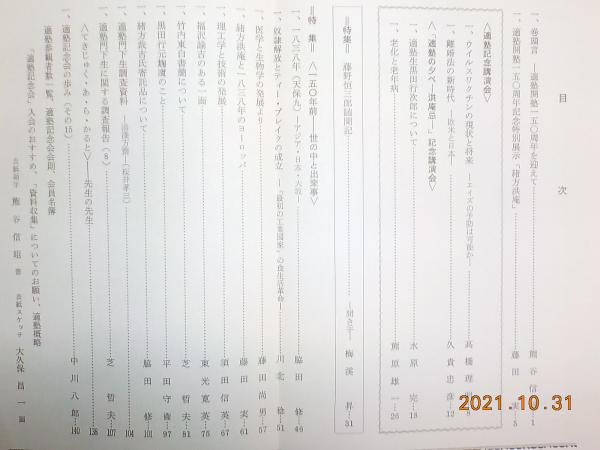 目　次
一、巻頭言 ―適塾開塾一五〇周年を迎えて― 熊谷信 1
一、適塾開塾一五〇周年記念特別展示「緒方洪庵」 藤田実 5
〈適塾記念講演会〉
一、ウイルスワクチンの現状と将来 ―エイズの予防は可能か― 高橋理 8
一、離婚法の新時代 ―欧米と日本― 久貴忠彦 12
〈「適塾の夕べ―洪庵忌―」記念講演会〉
一、適塾生黒田行次郎について 水原完 18
一、老化と老年病 熊原雄一 26
＝特集＝ 藤野恒三郎随聞記 ―聞き手― 梅溪昇 31
＝特集＝ 八一五〇年前 世の中と出来事〉
一、一八三八年（天保九）―アジア・日本・大坂― 脇田修 46
一、奴隷解放とティー・ブレイクの成立 ―「最初の工業国家」の食生活革命― 川北稔 51
一、医学と生物学の発展より 藤田尚男 57
一、緒方洪庵と一八三八年のヨーロッパ 藤田実 61
一、理工学と技術の発展 須田信英 67
一、福沢諭吉のある一面 東光寛英 75
一、竹内東白書簡について 芝哲夫 81
一、黒田行元麹廬のこと 平田守衛 97
一、緒方裁吉氏寄託品について 脇田修 101
一、適塾門下生調査資料 （桜井孝三） 104
一、適塾門下生に関する調査報告（8） 芝哲夫 107
〈てきじゅく・あ・ら・かると〉―先生の先生 138
一、適塾記念会の歩み（その15） 中川八郎 140
適塾参観者数一覧、適塾記念会会則、会員名簿
「適塾記念会」入会のおすすめ、「資料収集」についてのお願い、適塾概略
表紙題字 熊谷信昭 書
表紙スケッチ 大久保昌一 画
2021.10.31